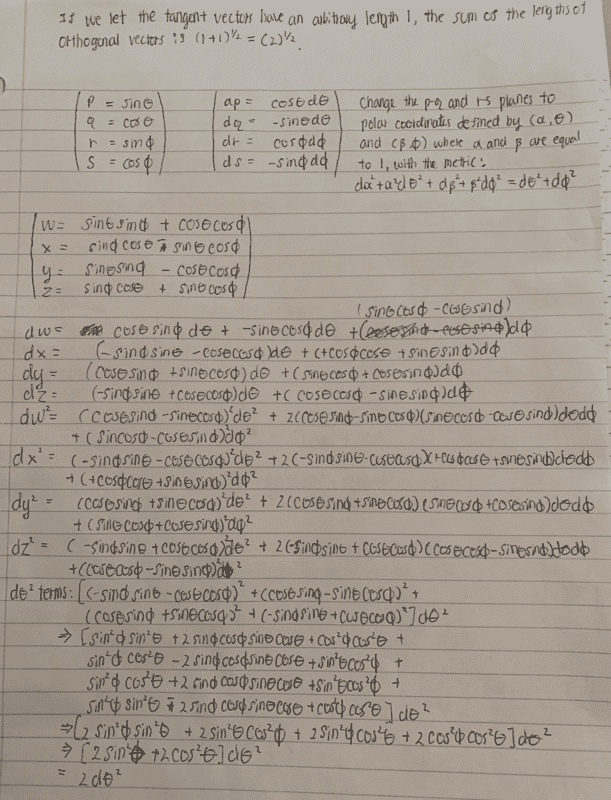 If we let the tangent vectors have an arbitrary length 1, the sum of the lengths of
orthogonal vectors is (1+1)^½ = (2)^½.
p = sinθ
q = cosθ
r = sinφ
s = cosφ
dp = cosθdθ
dq = -sinθdθ
dr = cosφdφ
ds = -sinφdφ
Change the p-q and r-s planes to
polar coordinates defined by (α,θ)
and (β,φ) where α and β are equal
to 1, with the metric:
dα²+α²dθ² + dβ²+β²dφ² = dθ²+dφ²
w = sinθsinφ + cosθcosφ
x = sinφcosθ - sinθcosφ
y = sinθsinφ - cosθcosφ
z = sinφcosθ + sinθcosφ
(sinθcosφ - cosθsinφ)
dw = cosθsinφdθ + -sinθcosφdθ + dφ
dx = (-sinφsinθ - cosθcosφ)dθ + (+cosφcosθ + sinθsinφ)dφ
dy = (cosθsinφ + sinθcosφ)dθ + (sinθcosφ + cosθsinφ)dφ
dz = (-sinφsinθ + cosθcosφ)dθ + (cosθcosφ - sinθsinφ)dφ
dw² = (cosθsinφ - sinθcosφ)²dθ² + 2(cosθsinφ - sinθcosφ)(sinθcosφ - cosθsinφ)dθdφ
+ (sinθcosφ - cosθsinφ)²dφ²
dx² = (-sinφsinθ - cosθcosφ)²dθ² + 2(-sinφsinθ - cosθcosφ)(+cosφcosθ + sinθsinφ)dθdφ
+ (+cosφcosθ + sinθsinφ)²dφ²
dy² = (cosθsinφ + sinθcosφ)²dθ² + 2(cosθsinφ + sinθcosφ)(sinθcosφ + cosθsinφ)dθdφ
+ (sinθcosφ + cosθsinφ)²dφ²
dz² = (-sinφsinθ + cosθcosφ)²dθ² + 2(-sinφsinθ + cosθcosφ)(cosθcosφ - sinθsinφ)dθdφ
+ (cosθcosφ - sinθsinφ)²dφ²
dθ² terms: [(-sinφsinθ - cosθcosφ)² + (cosθsinφ - sinθcosφ)² +
(cosθsinφ + sinθcosφ)² + (-sinφsinθ + cosθcosφ)²]dθ²
⇒ [sin²φsin²θ + 2sinφcosφsinθcosθ + cos²φcos²θ +
sin²φcos²θ - 2sinφcosφsinθcosθ + sin²θcos²φ +
sin²φcos²θ + 2sinφcosφsinθcosθ + sin²θcos²φ +
sin²φsin²θ - 2sinφcosφsinθcosθ + cos²φcos²θ]dθ²
⇒ [2sin²φsin²θ + 2sin²θcos²φ + 2sin²φcos²θ + 2cos²φcos²θ]dθ²
⇒ [2sin²θ + 2cos²θ]dθ²
= 2dθ²